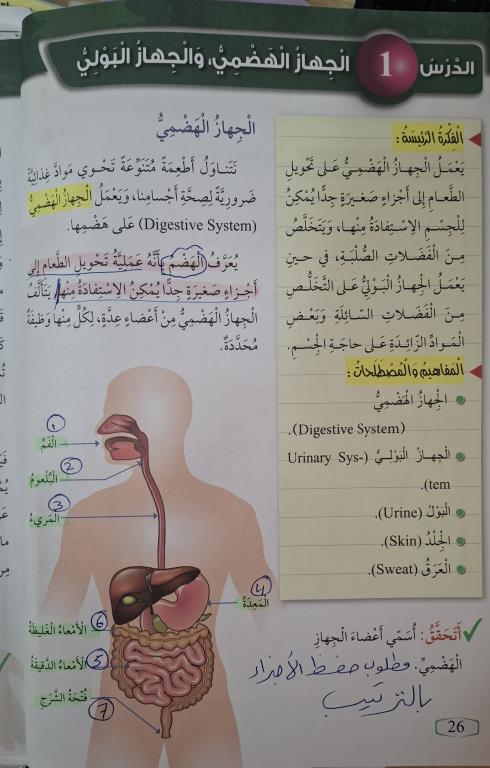 الدَّرْسُ 1 الْجِهازُ الْهَضْمِيُّ، وَالْجِهازُ الْبَوْلِيُّ
الْفِكْرَةُ الرَّئيسَةُ:
يَعْمَلُ الْجِهازُ الْهَضْمِيُّ عَلى تَحْويلِ
الطَّعامِ إِلى أَجْزاءٍ صَغيرَةٍ جِدًّا يُمْكِنُ
لِلْجِسْمِ الِاسْتِفادَةُ مِنْها، وَيَتَخَلَّصُ
مِنَ الْفَضَلاتِ الصُّلْبَةِ، في حينِ
يَعْمَلُ الْجِهازُ الْبَوْلِيُّ عَلى التَّخَلُّصِ
مِنَ الْفَضَلاتِ السّائِلَةِ وَبَعْضِ
الْمَوادِّ الزّائِدَةِ عَلى حاجَةِ الْجِسْمِ.
الْمَفاهيمُ وَالْمُصْطَلَحاتُ:
الْجِهازُ الْهَضْمِيُّ
(Digestive System).
الْجِهازُ الْبَوْلِيُّ (Urinary Sys-
tem).
الْبَوْلُ (Urine).
الْجِلْدُ (Skin).
الْعَرَقُ (Sweat).
أَتَحَقَّقُ: أُسَمّي أَعْضاءَ الْجِهازِ
الْهَضْمِيِّ. مطلوب حفظ الأجزاء
بالترتيب
الْجِهازُ الْهَضْمِيُّ
نَتَناوَلُ أَطْعِمَةً مُتَنَوِّعَةً تَحْوي مَوادَّ غِذائِيَّةً
ضَرورِيَّةً لِصِحَّةِ أَجْسامِنا، وَيَعْمَلُ الْجِهازُ الْهَضْمِيُّ
(Digestive System) عَلى هَضْمِها.
يُعَرَّفُ الْهَضْمُ بِأَنَّهُ عَمَلِيَّةُ تَحْويلِ الطَّعامِ إِلى
أَجْزاءٍ صَغيرَةٍ جِدًّا يُمْكِنُ الِاسْتِفادَةُ مِنْها. يَتَأَلَّفُ
الْجِهازُ الْهَضْمِيُّ مِنْ أَعْضاءٍ عِدَّةٍ، لِكُلٍّ مِنْها وَظيفَةٌ
مُحَدَّدَةٌ.
1 الْفَمُ
2 الْبُلْعومُ
3 الْمَريءُ
4 الْمَعِدَةُ
6 الْأَمْعاءُ الْغَليظَةُ
5 الْأَمْعاءُ الدَّقيقَةُ
فُتْحَةُ الشَّرَجِ 7
26